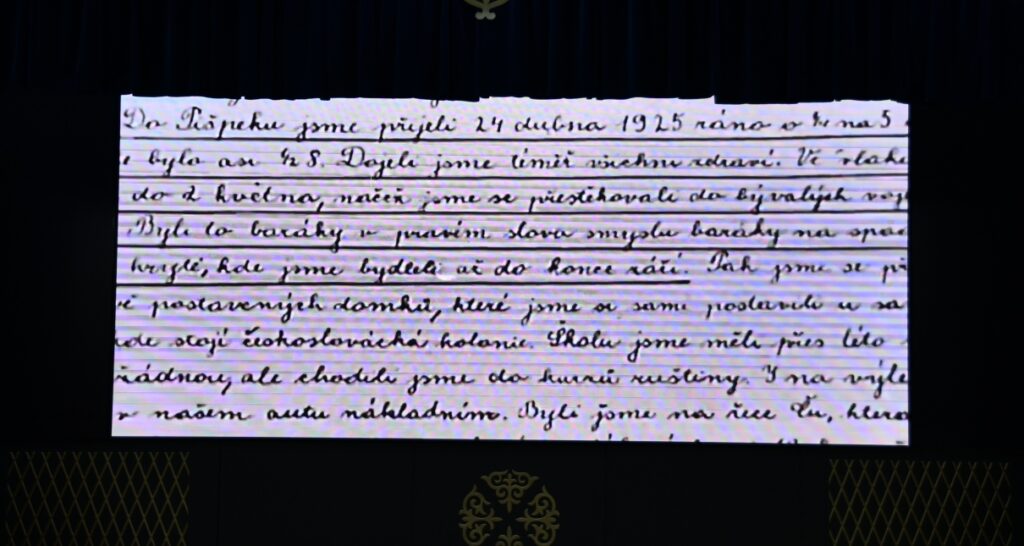 Do Pišpeku jsme přijeli 24 dubna 1925 ráno o ½ na 5
bylo asi ½ 8. Dojeli jsme téměř všichni zdraví. Ve vlaku
do 2 května, načež jsme se přestěhovali do bývalých voj
Byli to baráky v pravém slova smyslu baráky na spa
hrizlé, kde jsme bydleli až do konce září. Pak jsme se př
vě postavených domků, které jsme si sami postavili u sa
kde stojí českoslovácká kolonie. Školu jsme měli přes léto
řádnou, ale chodili jsme do kursů ruštiny. I na výle
v našem autu nákladním. Byli jsme na řece Ču, která